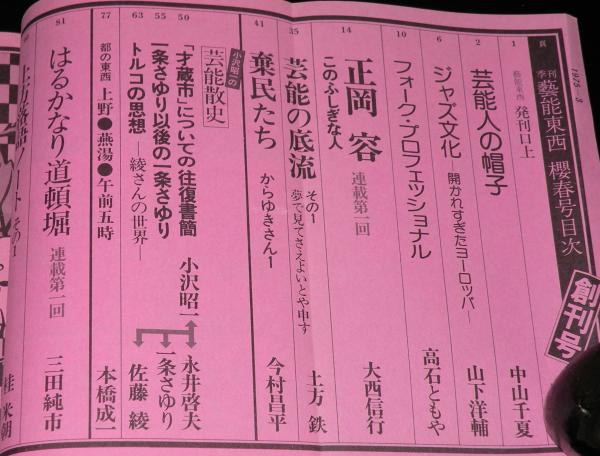 1975-5
季刊 藝能東西 櫻春号目次
創刊号
頁
1 藝能東西 発刊口上 中山千夏
2 芸能人の帽子 山下洋輔
6 ジャズ文化 開かれすぎたヨーロッパ
10 フォーク・プロフェッショナル 高石ともや
14 正岡 容 連載第一回 大西信行
このふしぎな人
35 芸能の底流 その1 夢で見てさえよいとや申す 土方 鉄
41 棄民たち からゆきさん1 今村昌平
小沢昭一の
芸能散史
50 「才蔵市」についての往復書簡 小沢昭一 永井啓夫
55 一条さゆり以後の一条さゆり 一条さゆり
63 トルコの思想 ―綾さんの世界― 佐藤 綾
77 都の東西 上野●燕湯●午前五時 本橋成一
81 はるかなり道頓堀 連載第一回 三田純市
上方落語ノート その1 桂 米朝